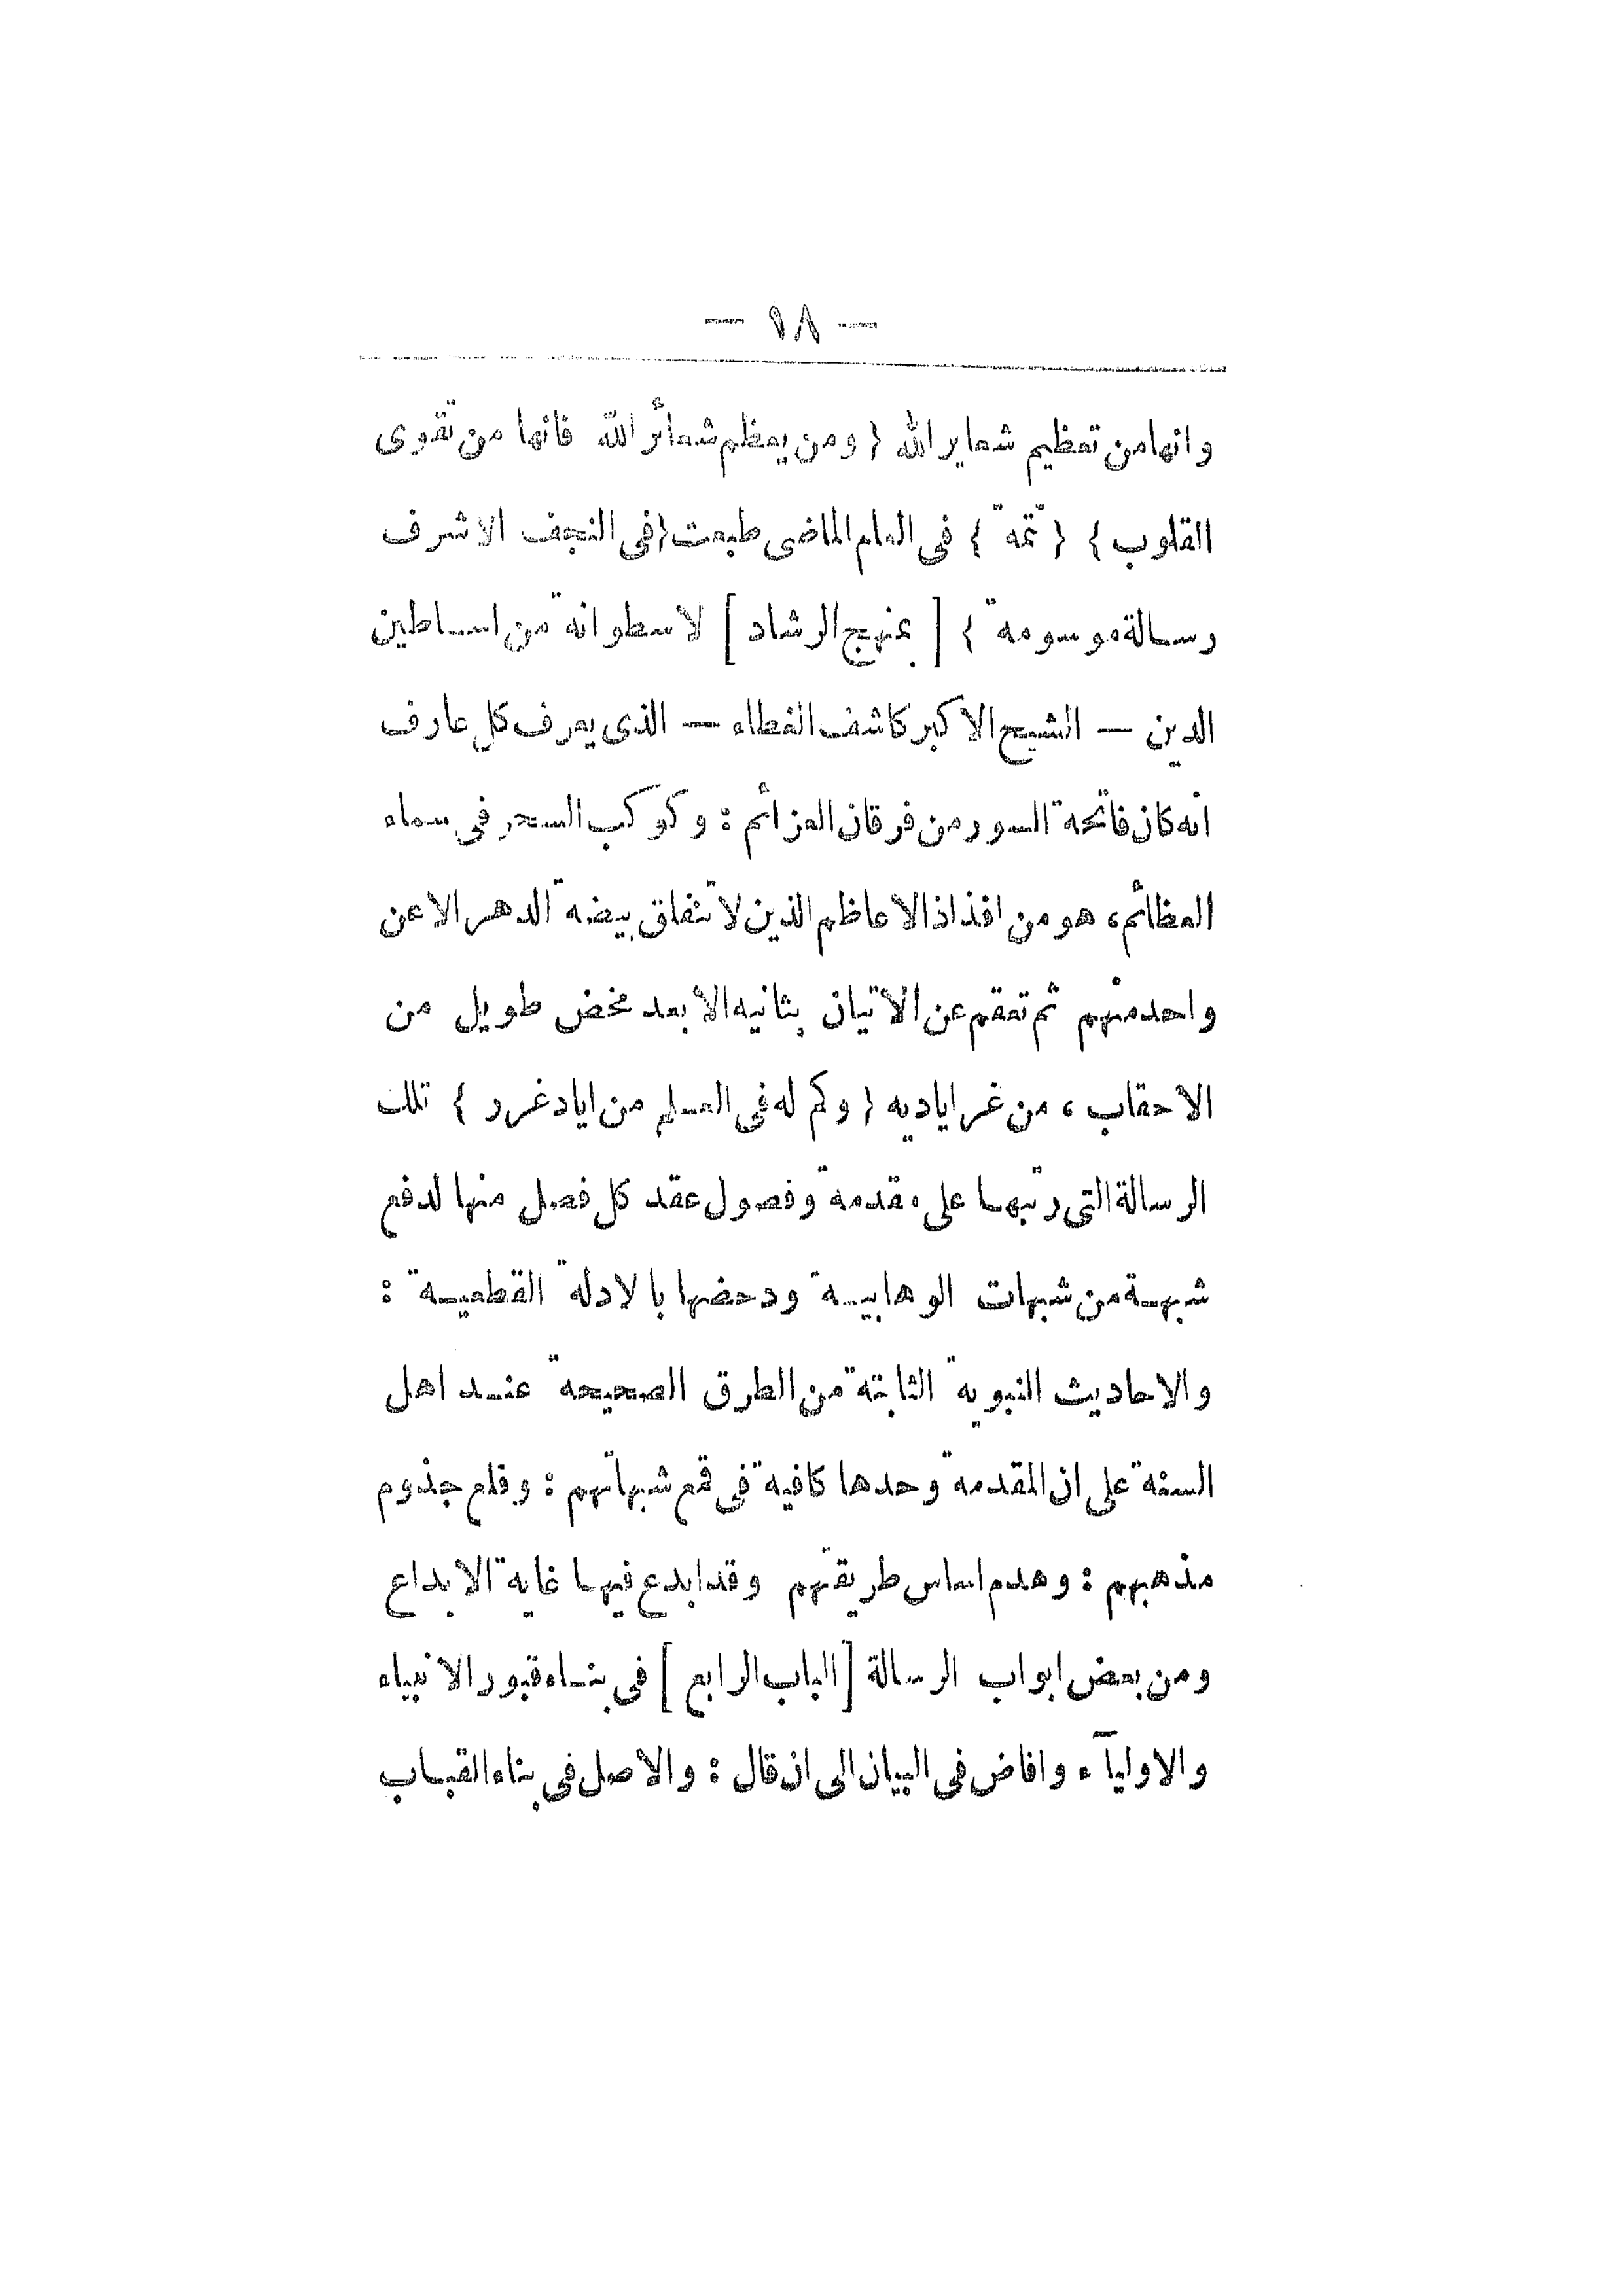 — ١٨ —
وانها من تعظيم شعاير الله { ومن يعظم شعائر الله فانها من تقوى
القلوب } { تتمة } فى العام الماضى طبعت { فى النجف الاشرف
رسالة موسومة } [ بمنهج الرشاد ] لاسطوانة من اساطين
الدين — الشيخ الاكبر كاشف الغطاء — الذى يعرف كل عارف
انه كان فاتحة السور من فرقان العزائم : وكوكب السحر فى سماء
العظائم ، هو من افذاذ الاعاظم الذين لا تنفلق بيضة الدهر الا عن
واحد منهم ثم تعقم عن الأتيان بثانيه الا بعد مخض طويل من
الاحقاب ، من غر اياديه { وكم له فى العلم من اياد غرر } تلك
الرسالة التى رتبها على مقدمة وفصول عقد كل فصل منها لدفع
شبهة من شبهات الوهابية ودحضها بالادلة القطعية :
والاحاديث النبوية الثابتة من الطرق الصحيحة عند اهل
السنة على ان المقدمة وحدها كافية فى قمع شبهاتهم : وقلع جذوم
مذهبهم : وهدم اساس طريقتهم وقد ابدع فيها غاية الابداع
ومن بعض ابواب الرسالة [ الباب الرابع ] فى بناء قبور الانبياء
والاوليآء وافاض فى البيان الى ان قال : والاصل فى بناء القباب